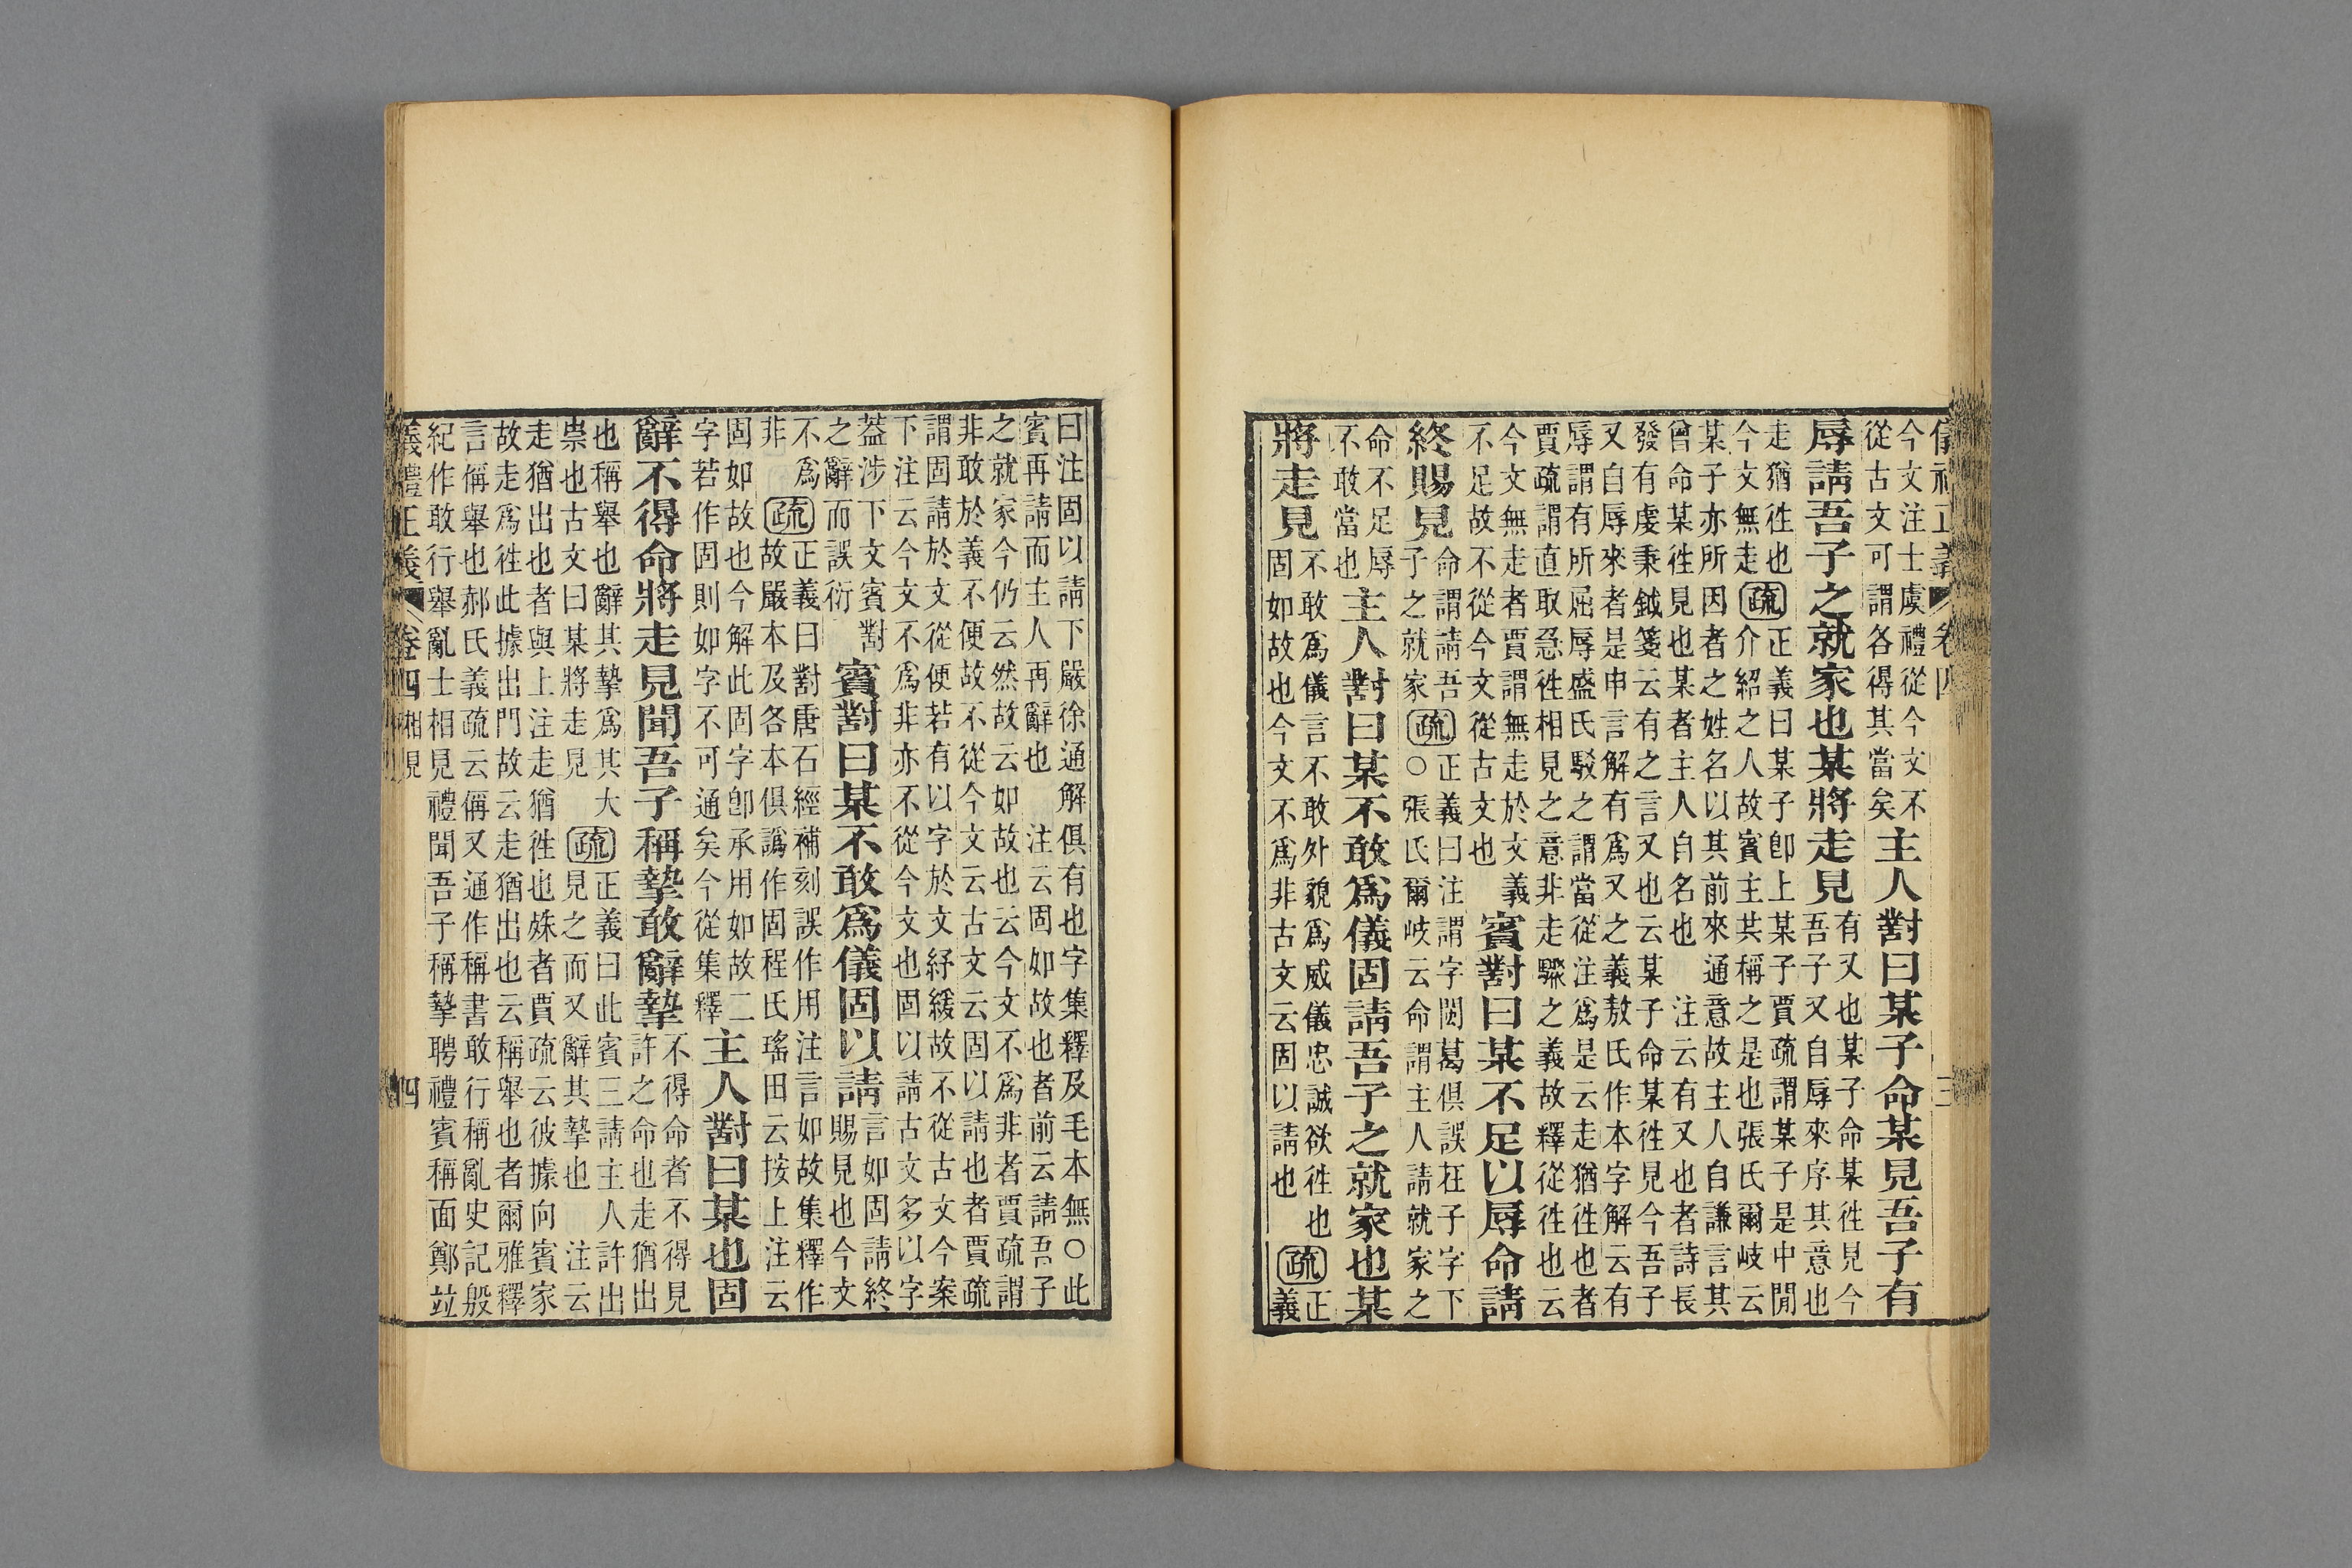 今文注士虞禮從今文不
從古文可謂各得其當矣
主人對曰某子命某見吾子有
辱請吾子之就家也某將走見
有又也某子命某徃見今
吾子又自辱來序其意也
走猶徃也
今文無走
疏
正義曰某子卽上某子賈疏謂某子是中閒
介紹之人故賓主其稱之是也張氏爾岐云
某子亦所因者之姓名以其前來通意故主人自謙言其
曾命某徃見也某者主人自名也 注云有又也者詩長
發有虔秉鉞箋云有之言又也云某子命某徃見今吾子
又自辱來者是申言解有爲又之義敖氏作本字解云有
辱謂有所屈辱盛氏駁之謂當從注爲是云走猶徃也者
賈疏謂直取急徃相見之意非走驟之義故釋從徃也云
今文無走者賈謂無走於文義
不足故不從今文從古文也
賓對曰某不足以辱命請
終賜見
命謂請吾
子之就家
疏
正義曰注謂字閩葛俱誤在子字下
○張氏爾岐云命謂主人請就家之
命不足辱
不敢當也
主人對曰某不敢爲儀固請吾子之就家也某
將走見
不敢爲儀言不敢外貌爲威儀忠誠欲徃也
固如故也今文不爲非古文云固以請也
疏
正
義
曰注固以請下嚴徐通解俱有也字集釋及毛本無○此
賓再請而主人再辭也 注云固如故也者前云請吾子
之就家今仍云然故云如故也云今文不爲非者賈疏謂
非敢於義不便故不從今文云古文云固以請也者賈疏
謂固請於文從便若有以字於文紓緩故不從古文今案
下注云今文不爲非亦不從今文也固以請古文多以字
葢涉下文賓對
之辭而誤衍
賓對曰某不敢爲儀固以請
言如固請終
賜見也今文
不爲
非
疏
正義曰對唐石經補刻誤作用注言如故集釋作
故嚴本及各本俱譌作固程氏瑤田云按上注云
固如故也今解此固字卽承用如故二
字若作固則如字不可通矣今從集釋
主人對曰某也固
辭不得命將走見聞吾子稱摯敢辭摯
不得命者不得見
許之命也走猶出
也稱舉也辭其摯爲其大
崇也古文曰某將走見
疏
正義曰此賓三請主人許出
見之而又辭其摯也 注云
走猶出也者與上注走猶徃也殊者賈疏云彼據向賓家
故走爲徃此據出門故云走猶出也云稱舉也者爾雅釋
言偁舉也郝氏義疏云偁又通作稱書敢行稱亂史記殷
紀作敢行舉亂士相見禮聞吾子稱摯聘禮賓稱面鄭竝
儀禮正義 卷四 相見 四